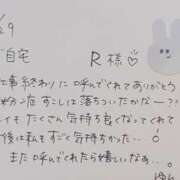 /29
自宅
R様♡
仕事終わりに呼んでくれてありがとう
粉症すこしは落ちついたかなー??
イもたくさん気持ち良くなってくれて
後は私もすごく気持ちかった...
また呼んでくれたら嬉しいなぁ...
ゆん